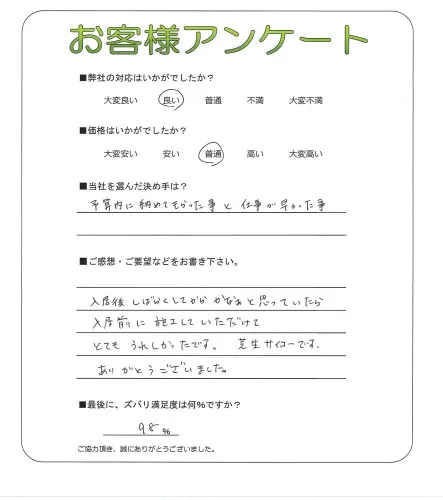 お客様アンケート
■弊社の対応はいかがでしたか？
大変良い 良い 普通 不満 大変不満
■価格はいかがでしたか？
大変安い 安い 普通 高い 大変高い
■当社を選んだ決め手は？
予算内に納めてもらった事と 仕事が早かった事
■ご感想・ご要望などをお書き下さい。
入居後しばらくしてからかなぁと思っていたら
入居前に施工していただけて
とてもうれしかったです。 芝生サイコーです.
ありがとうございました。
■最後に、ズバリ満足度は何％ですか？
98％
ご協力頂き、誠にありがとうございました。